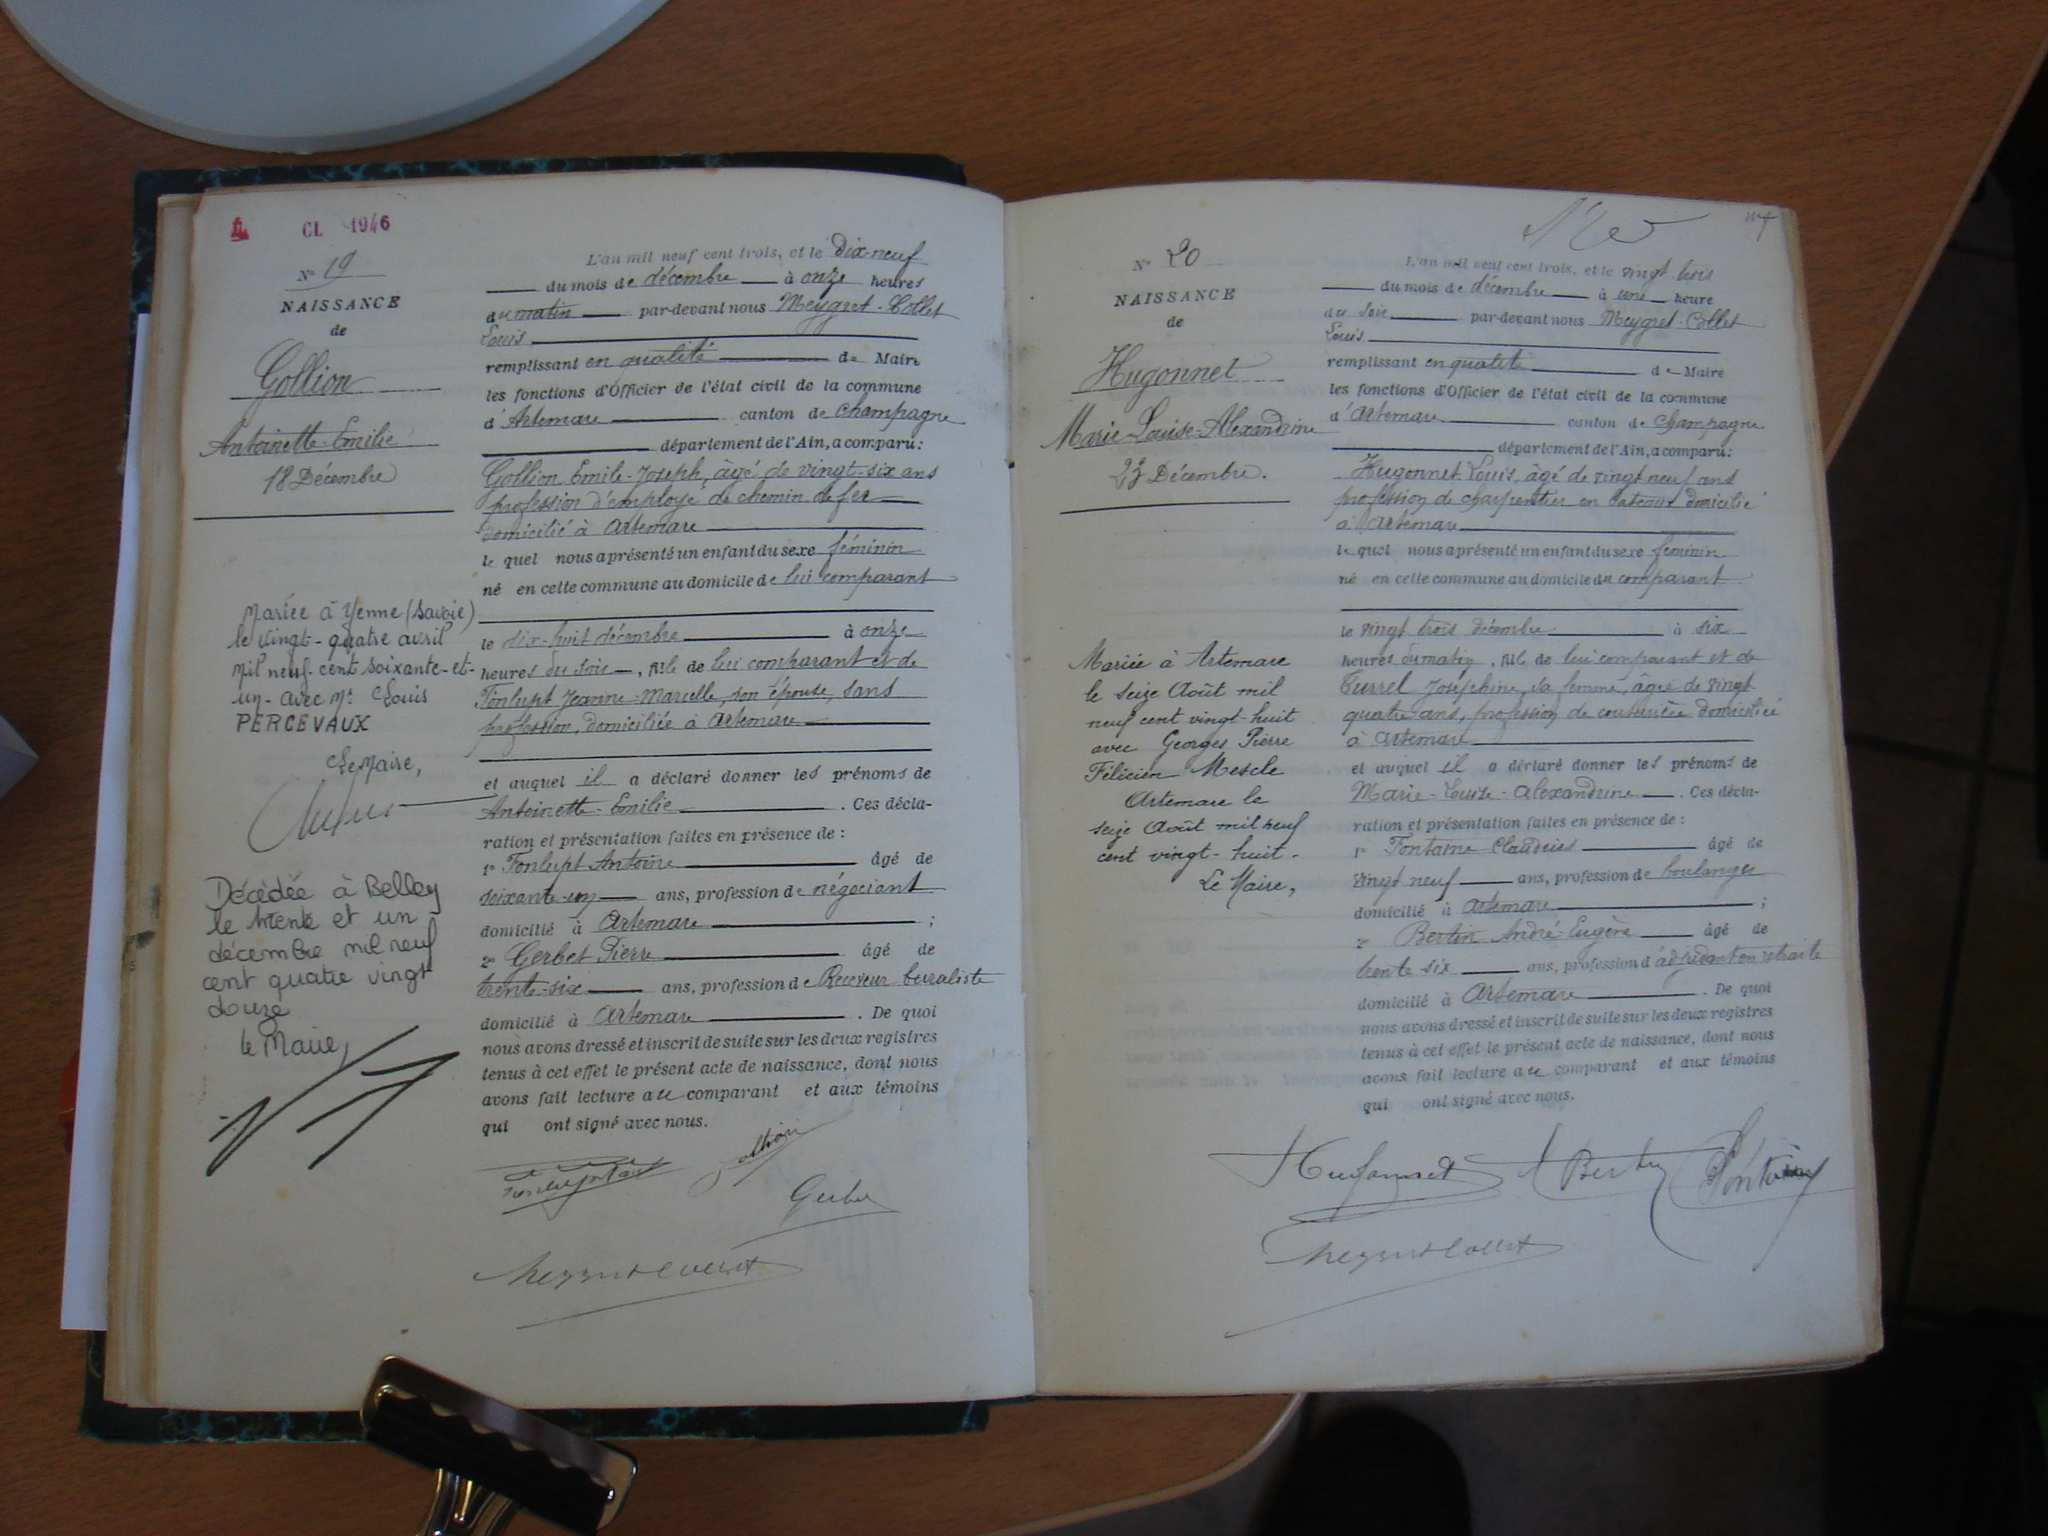 CL 1946
N° 19
NAISSANCE
de
Gollion
Antoinette-Emilie
18 Décembre
Mariée à Yenne (Savoie)
le vingt-quatre avril
mil neuf-cent soixante-et-
un-avec Mr Louis
PERCEVAUX
Le Maire,
Décédée à Belley
le trente et un
décembre mil neuf
cent quatre vingt
douze
le Maire,
L'an mil neuf cent trois, et le Dix neuf
du mois de décembre à onze heures
du matin par-devant nous Meygret-Collet
Louis
remplissant en qualité de Maire
les fonctions d'Officier de l'état civil de la commune
d'Artemare canton de Champagne
département de l'Ain, a comparu:
Gollion Emile-Joseph, âgé de vingt-six ans
profession d'employé de chemin de fer
domicilié à Artemare
le quel nous a présenté un enfant du sexe féminin
né en cette commune au domicile de lui comparant
le dix-huit décembre à onze
heures du soir, fille de lui comparant et de
Fonlupt Jeanne-Marcelle, son épouse, sans
profession, domiciliée à Artemare
et auquel il a déclaré donner les prénoms de
Antoinette-Emilie. Ces décla-
ration et présentation faites en présence de :
1° Fonlupt Antoine âgé de
soixante-un ans, profession de négociant
domicilié à Artemare ;
2° Gerbet Pierre âgé de
trente-six ans, profession de Receveur buraliste
domicilié à Artemare. De quoi
nous avons dressé et inscrit de suite sur les deux registres
tenus à cet effet le présent acte de naissance, dont nous
avons fait lecture au comparant et aux témoins
qui ont signé avec nous.
Gollion
Gerbet
Meygret Collet
N° 20
NAISSANCE
de
Hugonnet
Marie-Louise-Alexandrine
23 Décembre.
Mariée à Artemare
le seize Août mil
neuf cent vingt-huit
avec Georges Pierre
Félicien Mescle
Artemare le
seize Août mil neuf
cent vingt-huit.
Le Maire,
L'an mil neuf cent trois, et le vingt trois
du mois de décembre à une heure
du soir par-devant nous Meygret-Collet
Louis
remplissant en qualité de Maire
les fonctions d'Officier de l'état civil de la commune
d'Artemare canton de Champagne
département de l'Ain, a comparu:
Hugonnet Louis, âgé de vingt neuf ans
profession de charpentier en bateaux domicilié
à Artemare
le quel nous a présenté un enfant du sexe féminin
né en cette commune au domicile du comparant
le vingt trois décembre à six
heures du matin, fille de lui comparant et de
Turrel Joséphine, sa femme, âgée de vingt
quatre ans, profession de couturière domiciliée
à Artemare
et auquel il a déclaré donner les prénoms de
Marie-Louise-Alexandrine. Ces décla-
ration et présentation faites en présence de :
1° Fontaine Claudius âgé de
vingt neuf ans, profession de boulanger
domicilié à Artemare ;
2° Bertin André-Eugène âgé de
trente six ans, profession d'adjudant en retraite
domicilié à Artemare. De quoi
nous avons dressé et inscrit de suite sur les deux registres
tenus à cet effet le présent acte de naissance, dont nous
avons fait lecture au comparant et aux témoins
qui ont signé avec nous.
Hugonnet A Bertin Fontaine
Meygret Collet